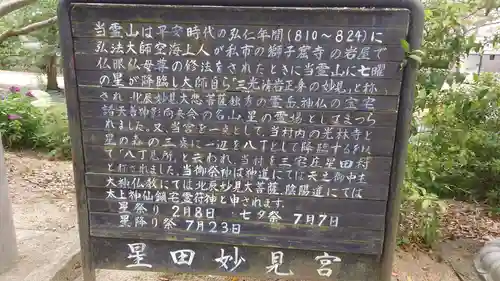 当霊山は平安時代の弘仁年間(810~824)に
弘法大師空海上人が私市の獅子窟寺の岩屋で
仏眼仏母尊の修法をされたときに当霊山に七曜
の星が降臨し大師自ら「三光清岩正身の妙見」と称
され 北辰妙見大悲菩薩独秀の霊岳、神仏の宝宅
諸天善神影向来会の名山星の霊場としてまつら
れました。又、当宮を一点として、当村内の光林寺と
星の森の三点に一辺を八丁として降臨するをもっ
て「八丁見所」と云われ、当村を三宅庄星田村
と称されました。当御祭神は神道にては天之御中主
大神仏教にては北辰妙見大菩薩、陰陽道にては
太上神仙鎮宅霊符神と申されます。
星祭り 2月8日 七夕祭 7月7日
星降り祭 7月23日
星田妙見宮